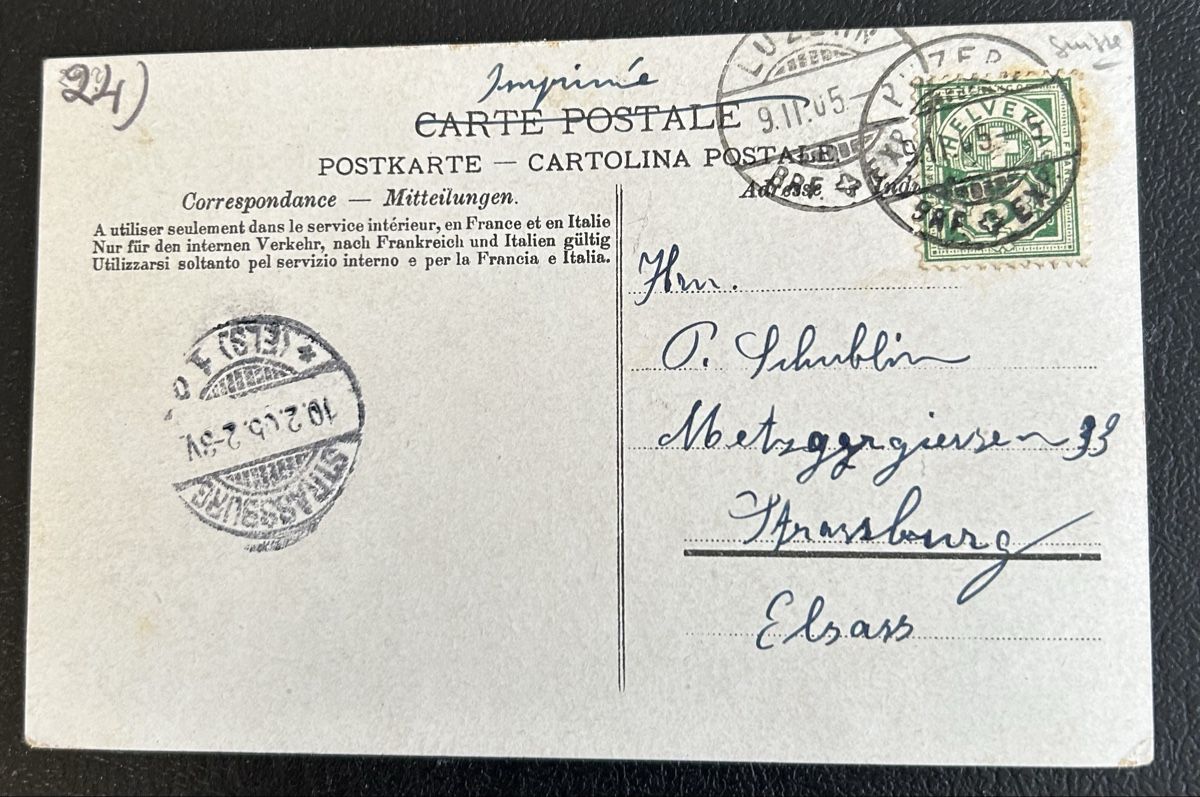 24)
Suisse
Imprimé
CARTE POSTALE
POSTKARTE — CARTOLINA POSTALE
Correspondance — Mitteilungen.
A utiliser seulement dans le service intérieur, en France et en Italie
Nur für den internen Verkehr, nach Frankreich und Italien gültig
Utilizzarsi soltanto pel servizio interno e per la Francia e Italia.
Adresse
LUZERN
9.II.05—
BRF. EXP.
LUZERN
9.II.05—
BRF EXP.
HELVETIA
Hrn.
P. Schublin
Metzgergiessen 33
Strassburg
Elsass
STRASSBURG
10.2.05.2-3V.
* (ELS) 1